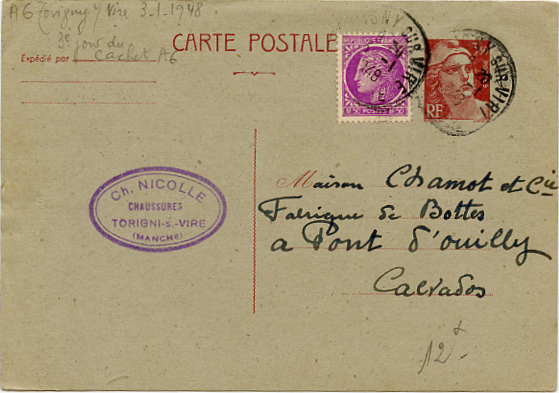 A6 Torigny s/ Vire 3-1-1948
3e jour du
cachet A6
CARTE POSTALE
Expédié par
RÉPUBLIQUE FRANÇAISE
SUR-VIRE
48
SUR-VIRE
RF
Ch. NICOLLE
CHAUSSURES
TORIGNI-s.-VIRE
(MANCHE)
Maison Chamot et Cie
Fabrique de Bottes
a Pont d'ouilly
Calvados
12